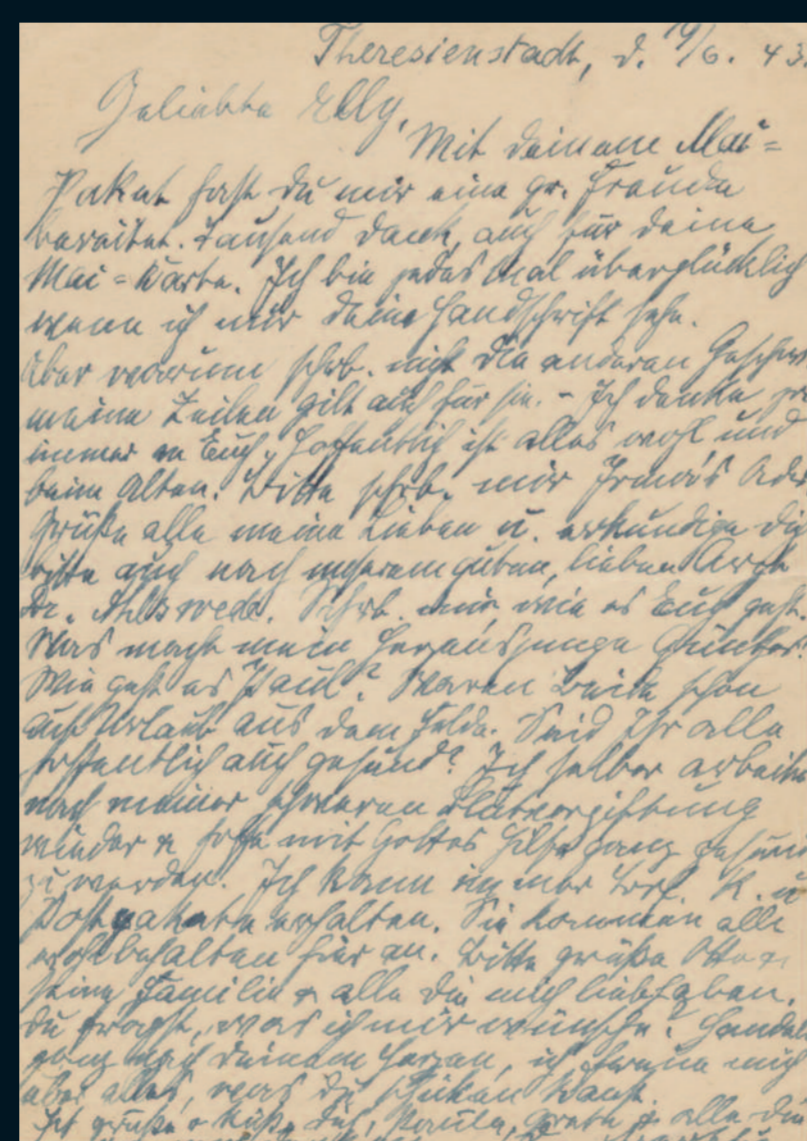 Theresienstadt, d. 19/6. 43.
Geliebte Elly,
Mit deinem Mai=
Paket hast du mir eine gr. Freude
bereitet. Tausend Dank, auch für deine
Mai=Karte. Ich bin jedes Mal überglücklich
wenn ich nur deine Handschrift sehe.
Aber warum schrb. nicht die anderen Geschw
meine Zeilen gilt auch für sie. - Ich denke
immer an Euch, hoffentlich ist alles wohl und
beim Alten. Bitte schrb. mir Adr
Grüße alle meine Lieben u. erkundige di
bitte auch nach unserem guten, lieben Arzt
Dr. Ahlswede. Schrb. mir wie es Euch geht.
Was macht mein Herzensjunge Günther?
Wie geht es Paul? Waren Beide schon
auf Urlaub aus dem Felde. Seid Ihr alle
hoffentlich auch gesund? Ich selber arbeite
nach meiner schweren Blutvergiftung
wieder & hoffe mit Gottes Hilfe ganz gesund
zu werden. Ich kann immer Brf. K. u
Postpakete erhalten. Sie kommen alle
wohlbehalten hier an. Bitte grüße Otto &
seine Familie & alle die mich liebhaben.
Du fragst, was ich mir wünsche? Handel
ganz nach deinem Herzen, ich freue mich
über alles, was du schicken kannst.
Ich grüße & küße dich, Paula, Grete & alle die